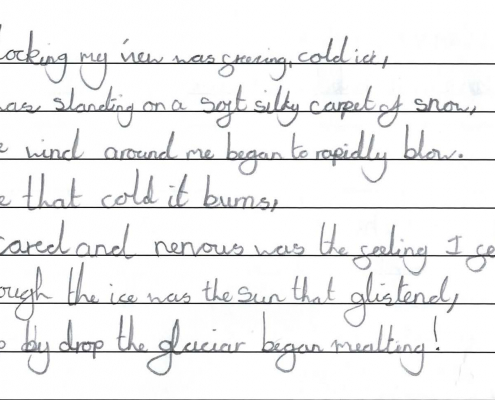 locking my view was freezing, cold ice,
was standing on a soft silky carpet of snow,
e wind around me began to rapidly blow.
e that cold it burns,
cared and nervous was the feeling I ge
ough the ice was the sun that glistend,
p by drop the glaciar began mealting!